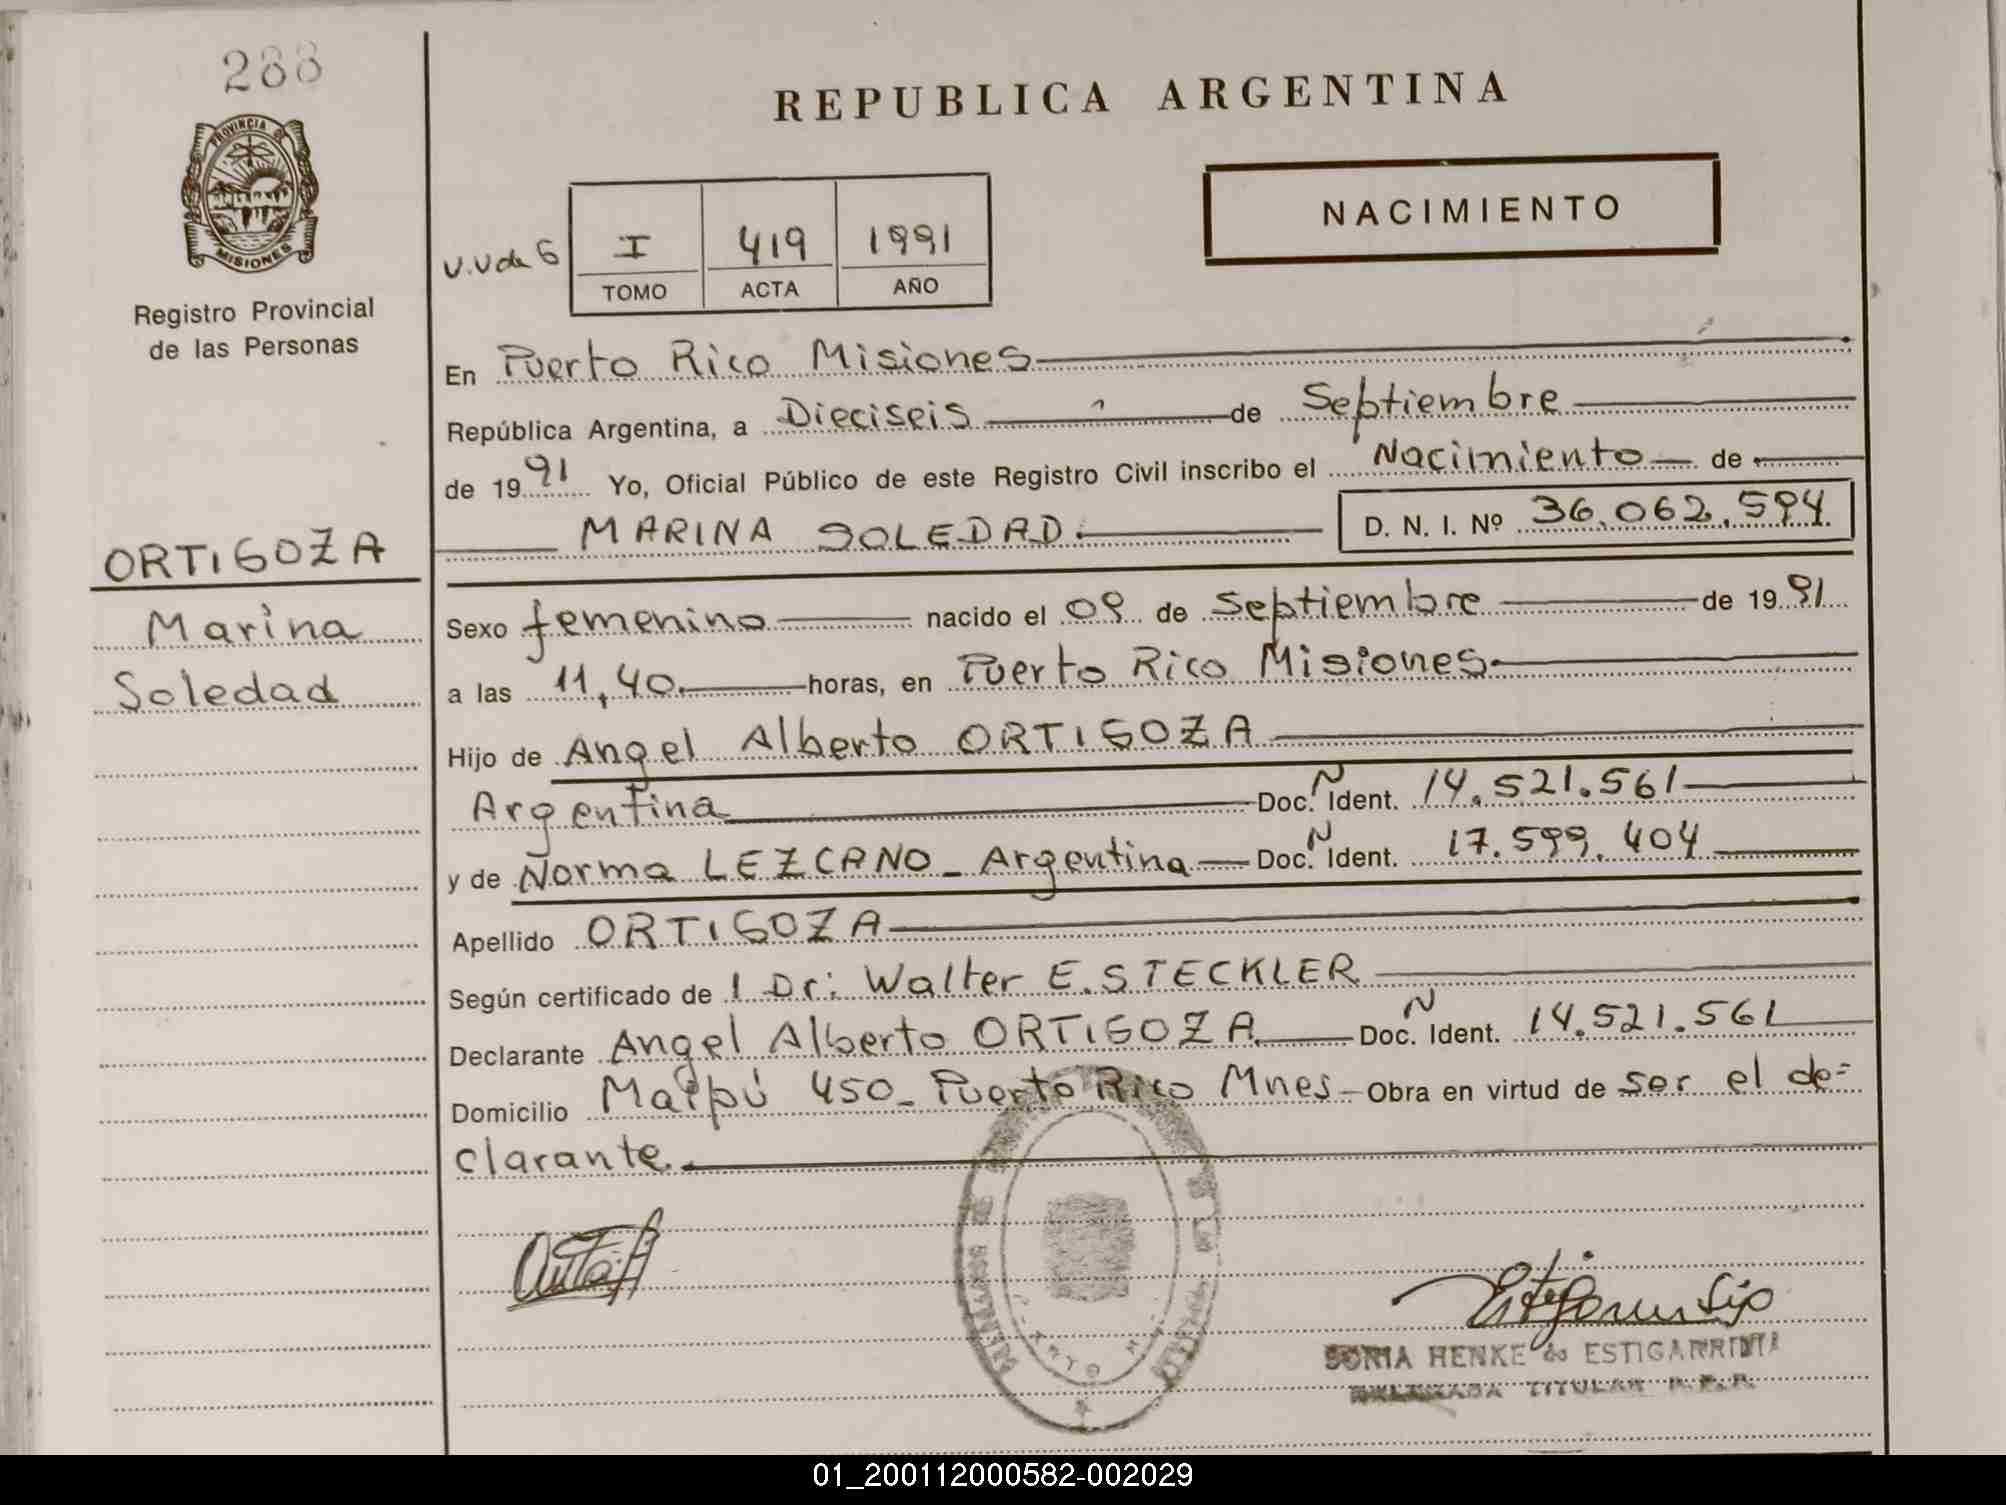 288
REPUBLICA ARGENTINA
PROVINCIA DE
MISIONES
NACIMIENTO
V.V de G
I 419 1991
TOMO ACTA AÑO
Registro Provincial
de las Personas
En Puerto Rico Misiones
República Argentina, a Dieciseis de Septiembre
de 1991 Yo, Oficial Público de este Registro Civil inscribo el Nacimiento de
MARINA SOLEDAD. D. N. I. Nº 36.062.594
ORTIGOZA
Marina
Soledad
Sexo femenino nacido el 09 de Septiembre de 1991
a las 11,40 horas, en Puerto Rico Misiones
Hijo de Angel Alberto ORTIGOZA
Argentina Doc. N Ident. 14.521.561
y de Norma LEZCANO_ Argentina Doc. N Ident. 17.599.404
Apellido ORTIGOZA
Según certificado de l Dr: Walter E. STECKLER
Declarante Angel Alberto ORTIGOZA Doc. N Ident. 14.521.561
Domicilio Maipú 450_ Puerto Rico Mnes Obra en virtud de ser el de=
clarante.
SONIA HENKE de ESTIGARRIBIA
TITULAR R.P.P.
01_200112000582-002029